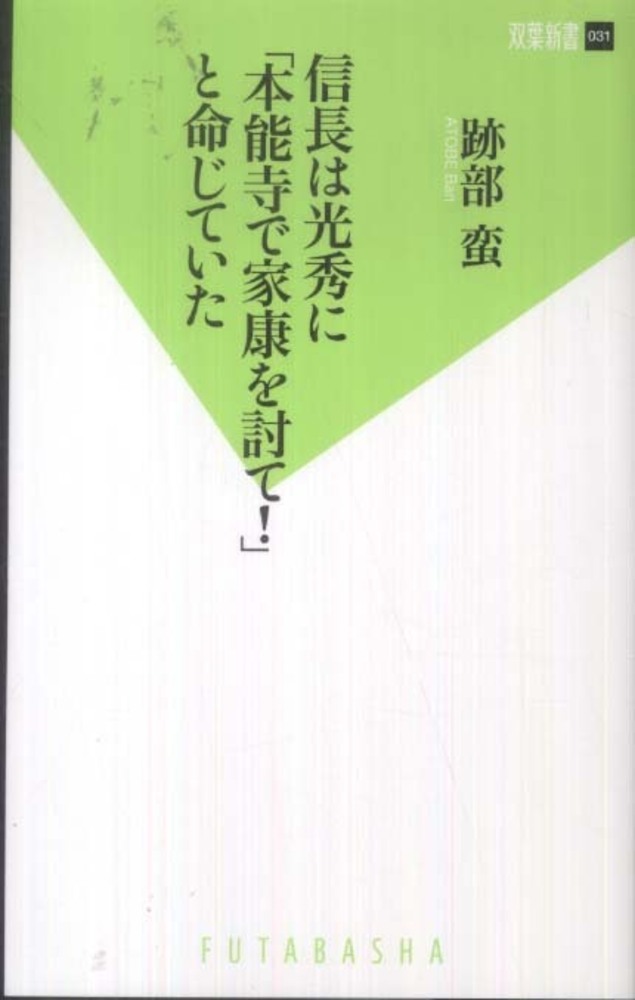 双葉新書 031
跡部 蛮
ATOBE Ban
信長は光秀に
「本能寺で家康を討て!」
と命じていた
FUTABASHA